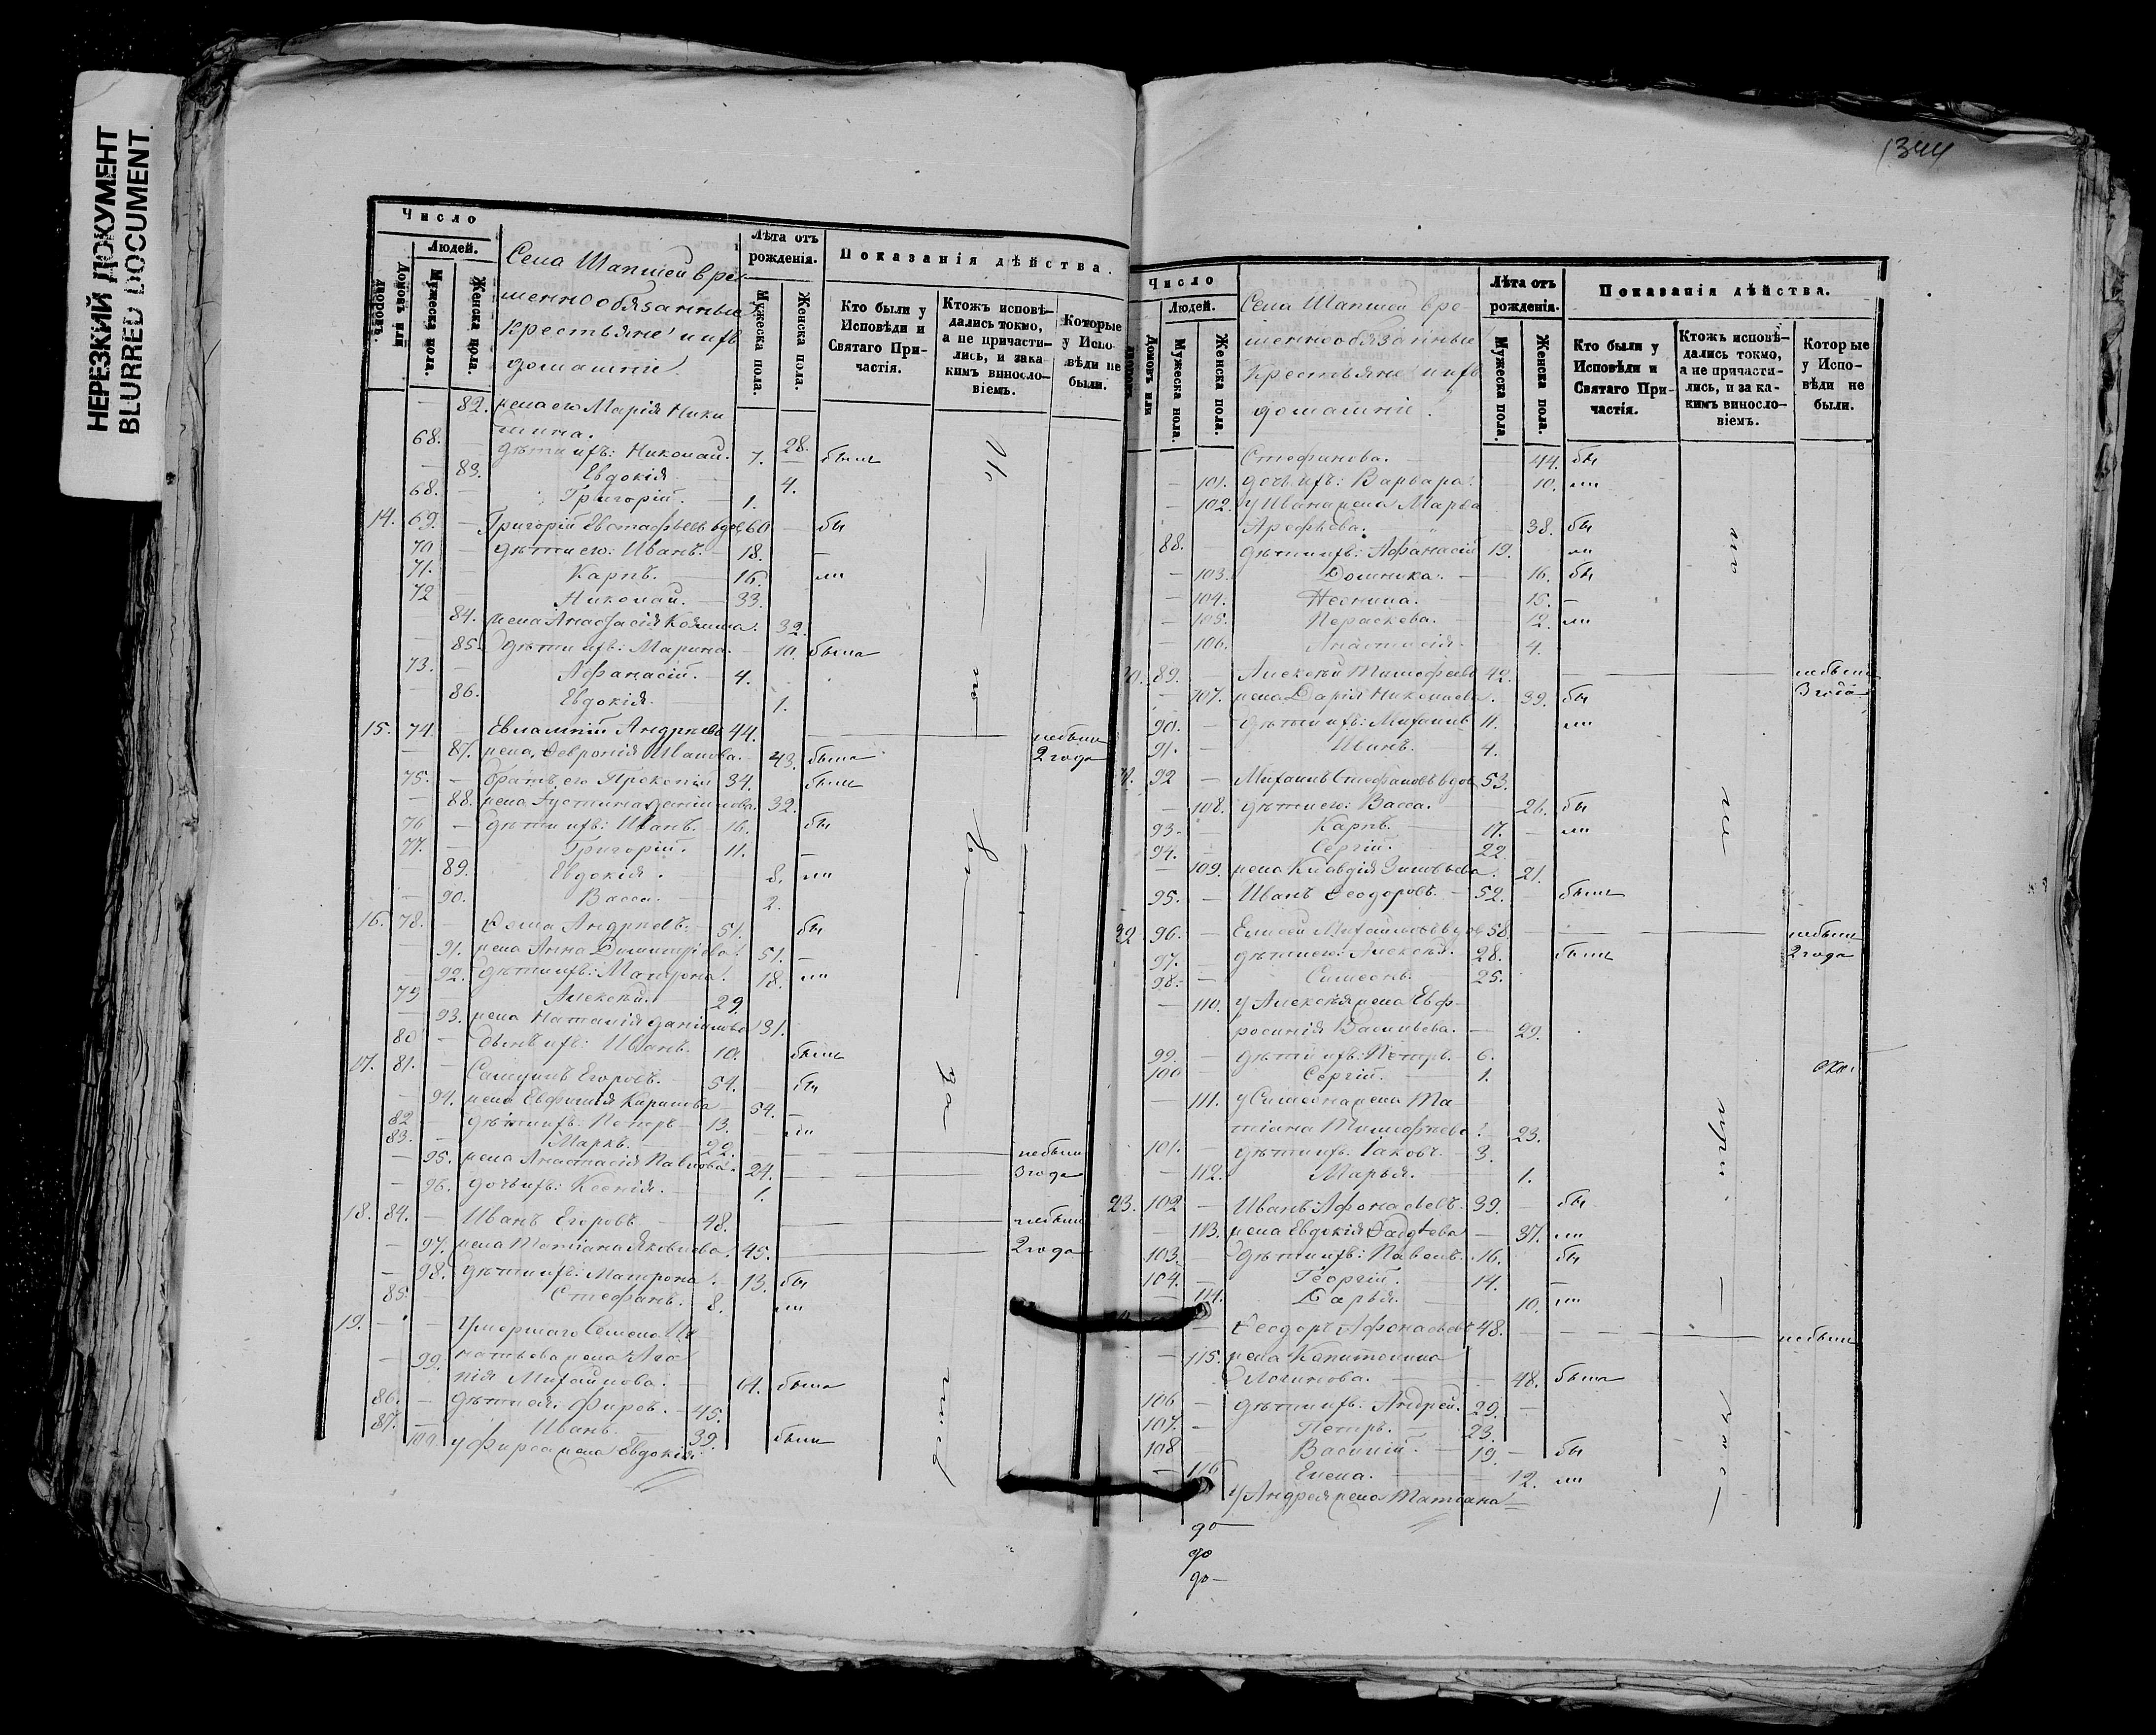 НЕРЕЗКИЙ ДОКУМЕНТ
BLURRED DOCUMENT
Число
Людей.
Домовъ или дворовъ.
Мужеска пола.
Женска пола.
Села Шапшей вре
менно обязанные
крестьяне и ихъ
домашніе.
Лѣта отъ рожденія.
Мужеска пола.
Женска пола.
Показанія дѣйства.
Кто были у Исповѣди и Святаго Причастія.
Ктожъ исповѣдались токмо, а не причастились, и за какимъ винословіемъ.
Которые у Исповѣди не были.
82. жена его Марія Ники
тина. 28.
68. дѣти ихъ: Николай. 7. были
83. Евдокія 4.
68. Григорій. 1.
14. 69. Григорій Евстафьевъ вдов 60 бы
70 дѣти его: Иванъ. 18.
71. Карпъ. 16. ли
72 Николай. 33.
84. жена Анастасія Козмина. 32.
85. дѣти ихъ: Марина. 10. была
73. Афанасій. 4.
86. Евдокія 1.
15. 74. Евлампій Андреевъ 44. небыли
87. жена Февронія Иванова. 43. была 2 года
75. братъ его Прокопій 34. были
88. жена Іустина Данилова. 32.
76 дѣти ихъ: Иванъ. 16. бы
77. Григорій. 11.
89. Евдокія. 8. ли
90. Васса. 2.
16. 78. Фома Андреевъ. 51. бы
91. жена Анна Димитріева. 51.
92. дѣти ихъ: Матрона. 18. ли
79 Алексѣй. 29.
93. жена Наталія Данилова 31.
80 сынъ ихъ: Иванъ. 10. были
17. 81. Самуилъ Егоровъ. 54. бы
94. жена Евфимія Карпова 54.
82 дѣти ихъ: Петръ 13. ли
83. Маркъ. 22.
95. жена Анастасія Павлова. 24. небыли
96. дочь ихъ: Ксенія. 1. 3 года
18. 84. Иванъ Егоровъ 48. небыли
97. жена Татіана Яковлева. 45. 2 года
98. дѣти ихъ: Матрона. 13. бы
85. Стефанъ. 8. ли
19. Умершаго Семена Иг
99. натьева жена Ага
пія Михайлова. была
86. дѣти ея: Фирсъ. 45.
87. Иванъ. 39. были
100. у Фирса жена Евдокія
1344
Число
Людей.
Домовъ или дворовъ
Мужеска пола.
Женска пола.
Села Шапшей вре
менно обязанные
крестьяне и ихъ
домашніе.
Лѣта отъ рожденія.
Мужеска пола.
Женска пола.
Показанія дѣйства.
Кто были у Исповѣди и Святаго Причастія.
Ктожъ исповѣдались токмо, а не причастились, и за какимъ винословіемъ.
Которые у Исповѣди не были.
Стефанова. 44. бы
101. дочь ихъ: Варвара. 10. ли
102. у Ивана жена Марѳа
Арефьева. 38. бы
88. дѣти ихъ: Афанасій 19. ли
103. Домника. 16. бы
104. Неонила. 15.
105. Параскева. 12. ли
106. Анастасія. 4.
89. Алексѣй Тимофеевъ 42. небыли
107. жена Дарія Николаева. 39. бы 3 года
90. дѣти ихъ: Михаилъ 11. ли
91. Иванъ. 4.
92 Михаилъ Стефановъ вдов 53.
108. дѣти его: Васса. 26. бы
93. Карпъ. 17. ли
94. Сергій. 22
109. жена Клавдія Зиновьева. 21.
95. Иванъ Ѳеодоровъ. 52. былъ
22 96. Елисей Михайловъ вдов 58. небыли
97. дѣти его: Алексѣй. 28. былъ 2 года
98. Симеонъ. 25.
110. у Алексѣя жена Евф
росинія Васильева. 29.
99. дѣти ихъ: Петръ. 6.
100 Сергій. 1.
111. у Симеона жена Та
тіана Тимофеева. 23.
101. дѣти ихъ. Іаковъ. 3.
112. Марья. 1.
23. 102 Иванъ Афонасьевъ. 39. бы
113. жена Евдокія Фадѣева 37. ли
103. дѣти ихъ: Павелъ. 16. бы
104. Георгій. 14.
114. Дарья. 10. ли
Ѳеодоръ Афонасьевъ 48. небыли
115. жена Капитолина
Логинова. 48. была
106 дѣти ихъ. Андрей. 29.
107. Петръ. 23.
108 Василій. 19 бы
116 Елена. 12. ли
У Андрея жена Татіана
до
до
до